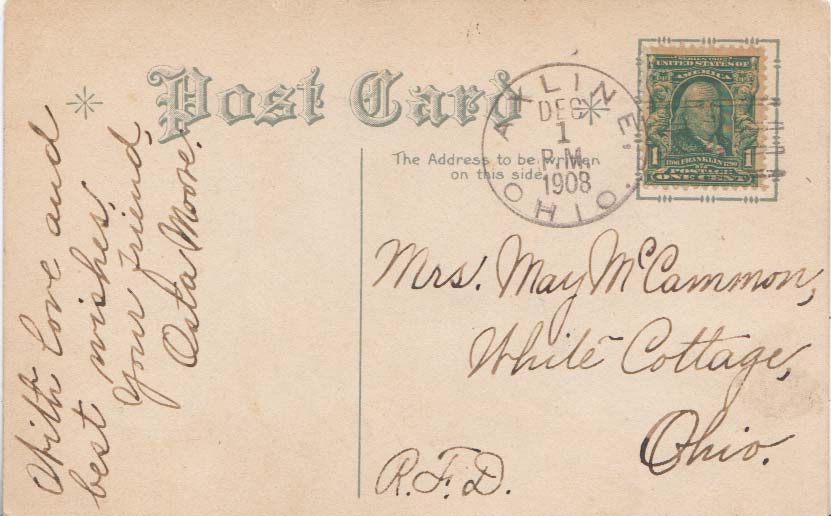 Post Card
The Address to be written
on this side.
AXLINE,
OHIO.
DEC
1
P.M.
1908
SERIES 1902
UNITED STATES OF
AMERICA
1 FRANKLIN 1
POSTAGE
ONE CENT
With love and
best wishes,
Your friend,
Osta Moore.
Mrs. May McCammon,
White Cottage,
Ohio.
R.F.D.